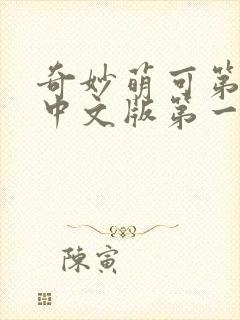 奇妙萌可第
中文版第一
陳寅